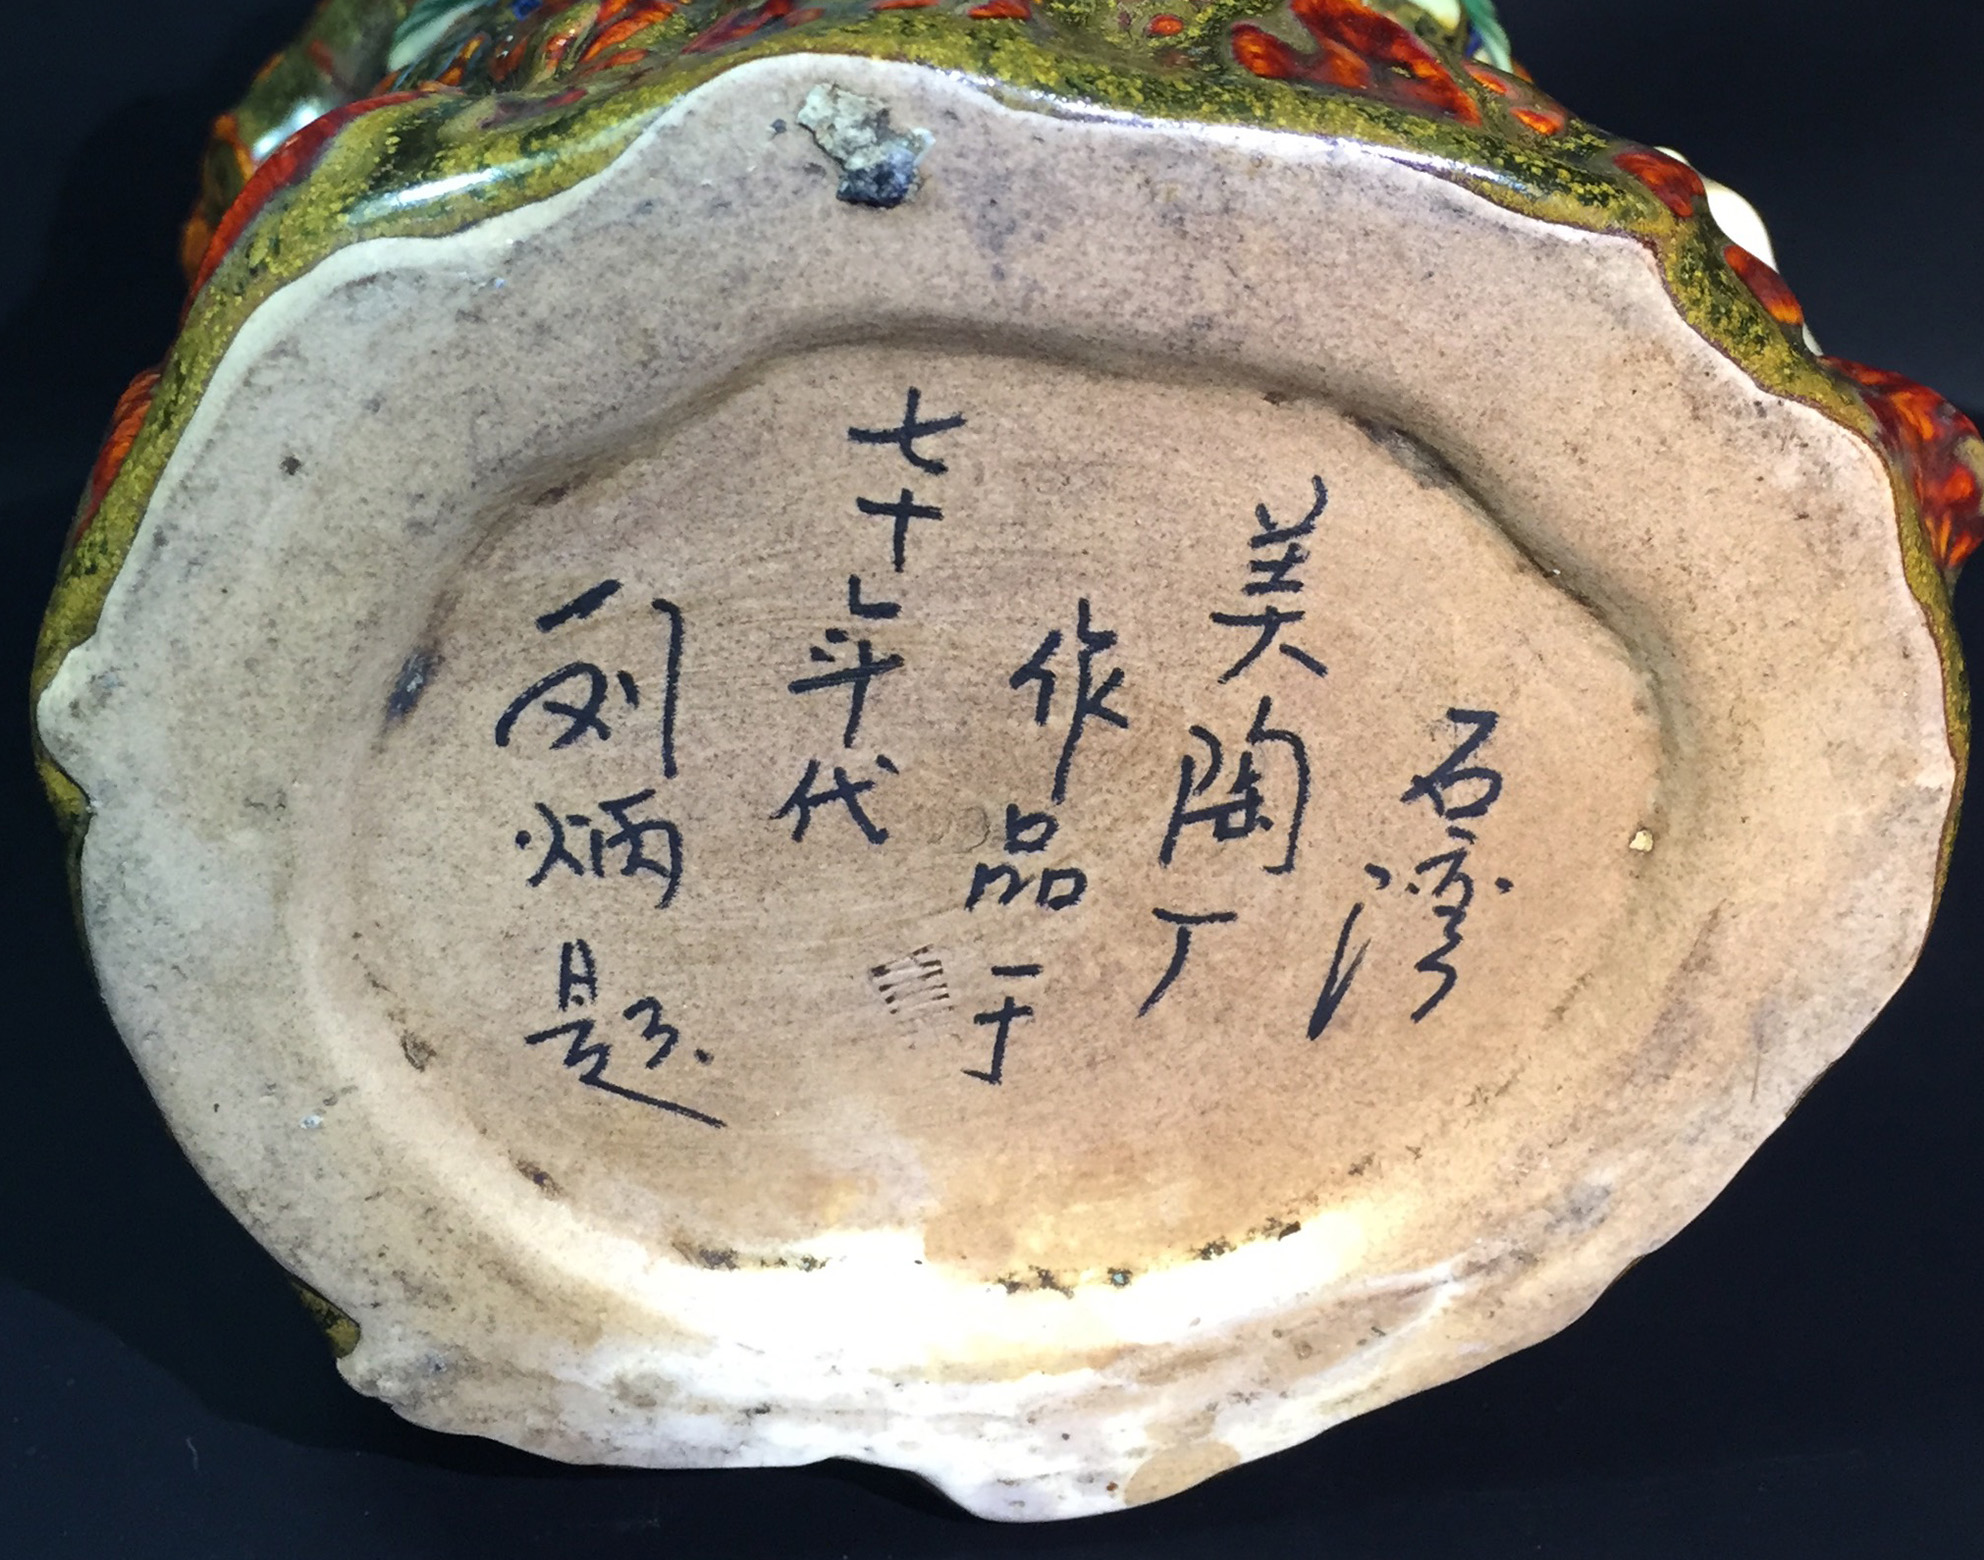 石湾
美陶厂
作品于
七十年代
刘炳题